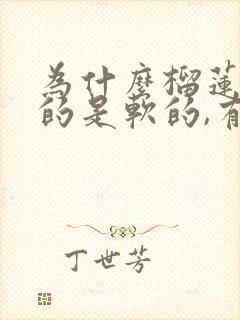 为什麼榴蓮
的是软的,有
丁世芳